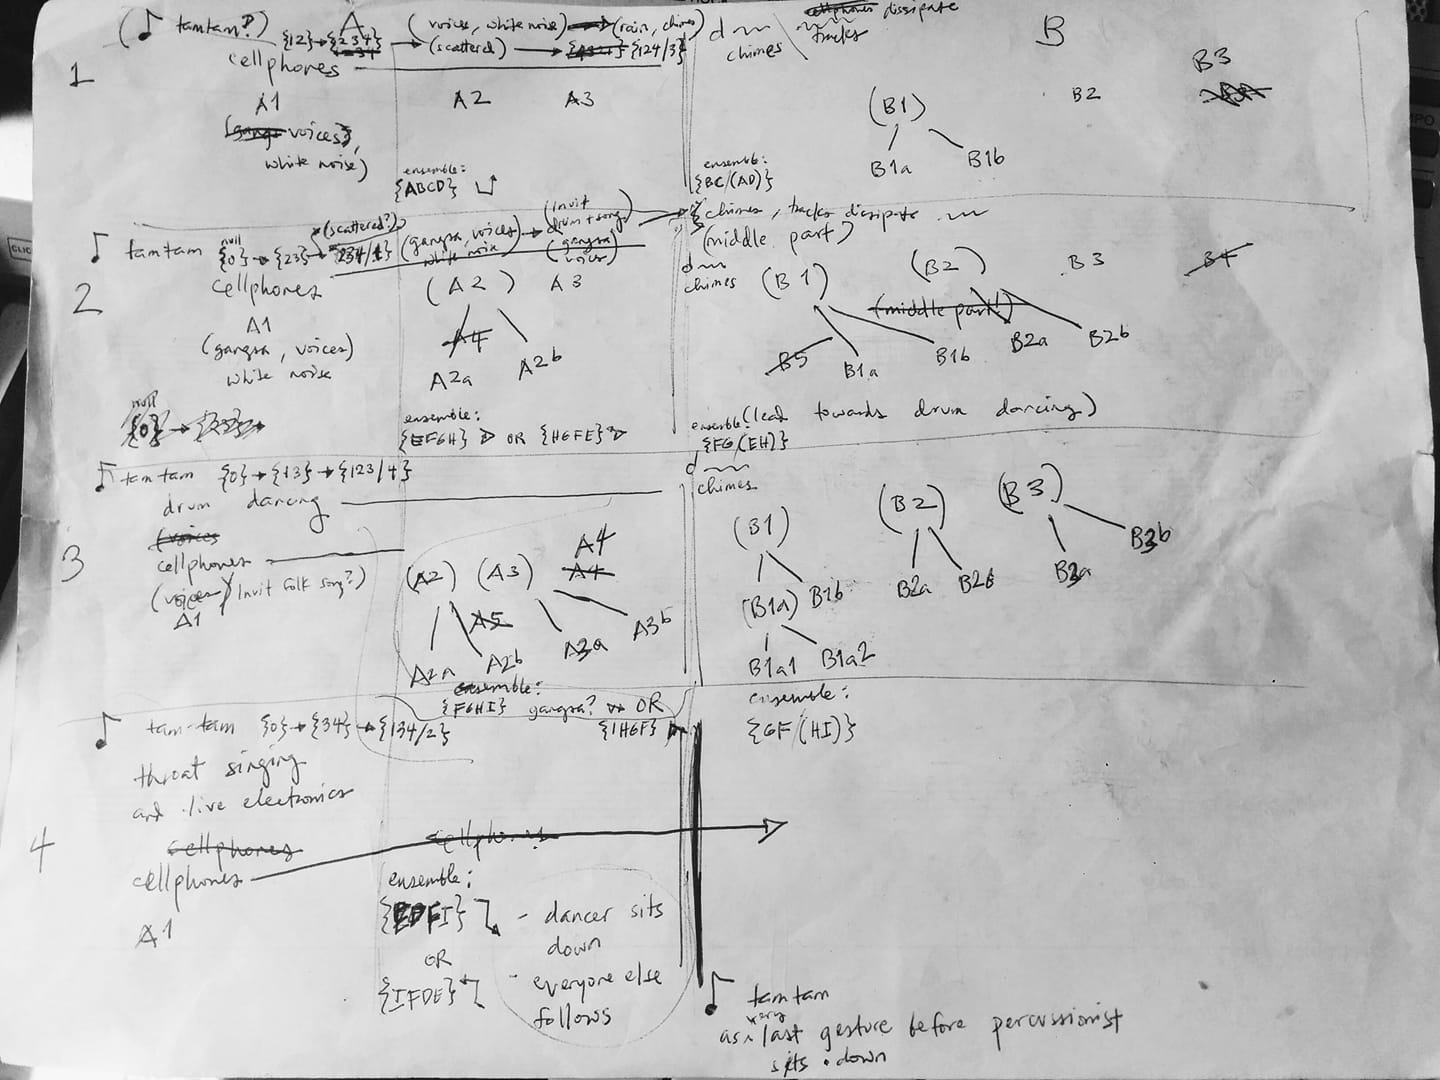 (♪ tamtam?) {12} → {234}
A
(voices, white noise) → (rain, chimes)
(scattered) → {124/3}
cellphones
A1
voices},
white noise)
A2 A3
ensemble:
{ABCD}
cellphones dissipate
tracks
d
chimes
B
(B1)
B1a B1b
B2
B3
ensemble:
{BC/(AD)}
1
♪ tamtam null {0} → {23} → (scattered?) 234/1}
cellphones
A1
(gangsa, voices)
white noise
null
{0} →
(gangsa, voices) → (Inuit
white noise drum + song)
(gangsa
voices)
(A2) A3
A4
A2a A2b
ensemble:
{EFGH} OR {HGFE}
{chimes, tracks dissipate
(middle part)
d
chimes
(B1) (B2) B3 B4
(middle part!)
B5 B1a B1b B2a B2b
ensemble: (lead towards drum dancing)
{FG(EH)}
2
♪ tamtam {0} → {13} → {123/4}
drum dancing
(voices
cellphones
(voices) Inuit folk song?)
A1
(A2) (A3) A4
A4
A5
A2a A2b A3a A3b
ensemble:
{FGHI} gangsa? OR
{IHGF}
d
chimes
(B1) (B2) (B3)
(B1a) B1b B2a B2b B3a B3b
B1a1 B1a2
ensemble:
{GF/(HI)}
3
♪ tam-tam {0} → {34} → {134/2}
throat singing
and live electronics
cellphones
cellphones
A1
cellphones
ensemble:
{EDFI}
OR
{IFDE}
- dancer sits
down
- everyone else
follows
4
♪ tamtam
as very last gesture before percussionist
sits down